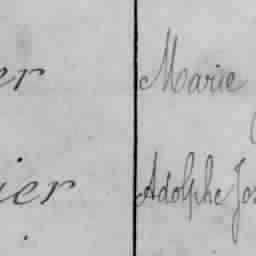 er Marie
ier Adolphe Jos